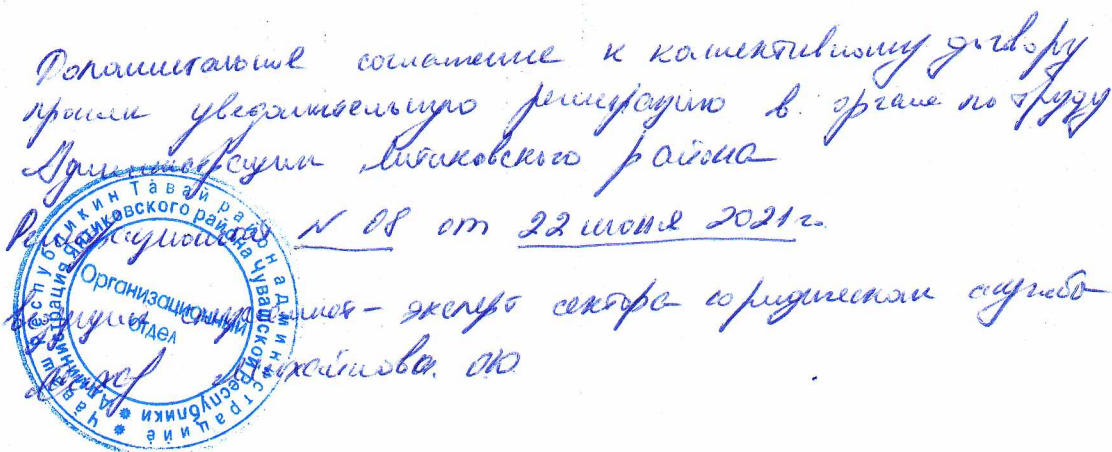 Дополнительное соглашение к коллективному договору
прошли уведомительную регистрацию в органе по труду
Администрации Яльчикского района
Регистрационная N 08 от 22 июня 2021 г.
Ведущий специалист-эксперт сектора юридической службы
Михайлова О.Ю
Чӑваш Республикин Тӑвай районӗн администрацийӗ
Администрация Янтиковского района Чувашской Республики
Организационный
отдел